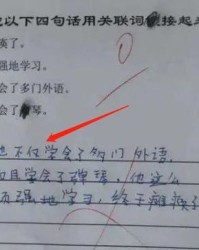 以下四句话用关联词 接起
痪了。
强地学习。
会了多门外语。
会了 琴。
也不仅学会了多门外语。
而且学会了弹琴，他这么
顽强地学习，终于瘫痪了